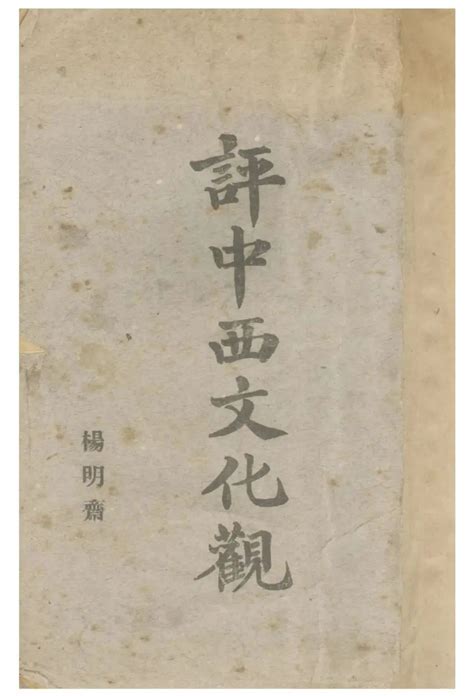 評中西文化觀
楊明齋